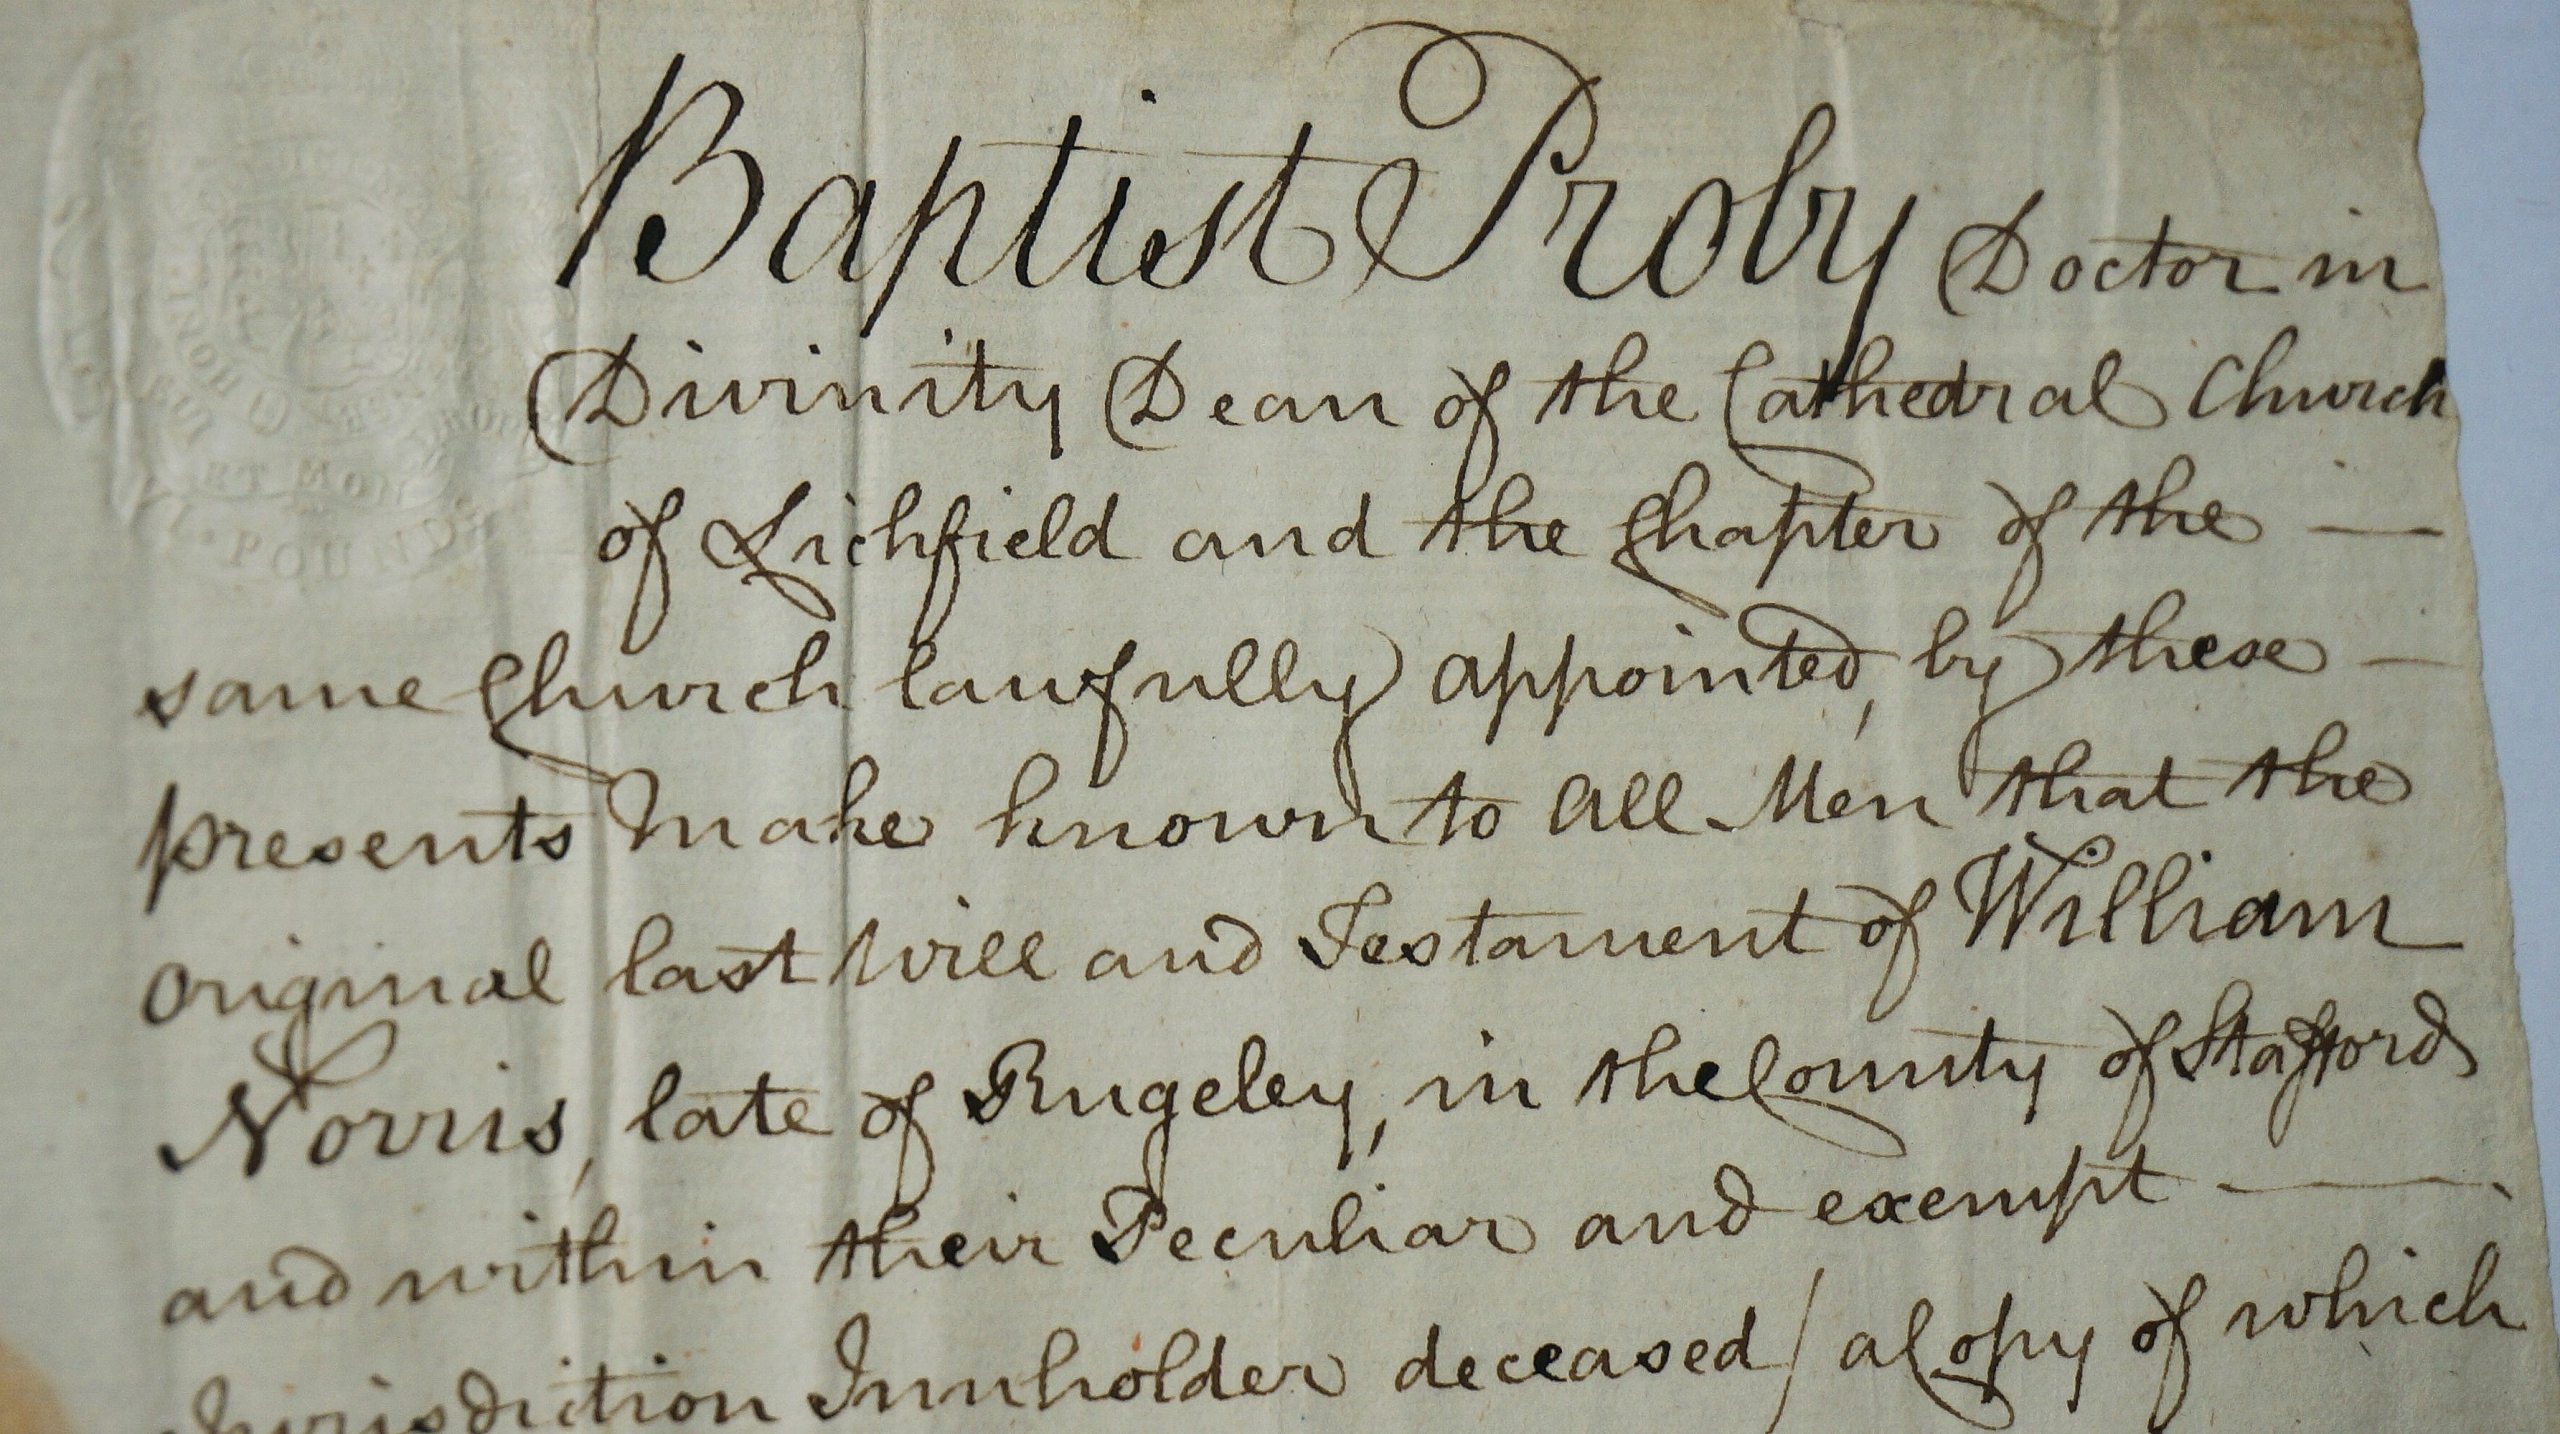 Baptist Proby Doctor in
Divinity Dean of the Cathedral Church
of Lichfield and the Chapter of the —
same Church lawfully appointed, by these —
presents Make known to all Men that the
original last Will and Testament of William
Norris, late of Rugeley, in the County of Stafford
and within their Peculiar and exempt —
Jurisdiction Innholder deceased / a Copy of which
HONI
ET MON
VI · POUNDS